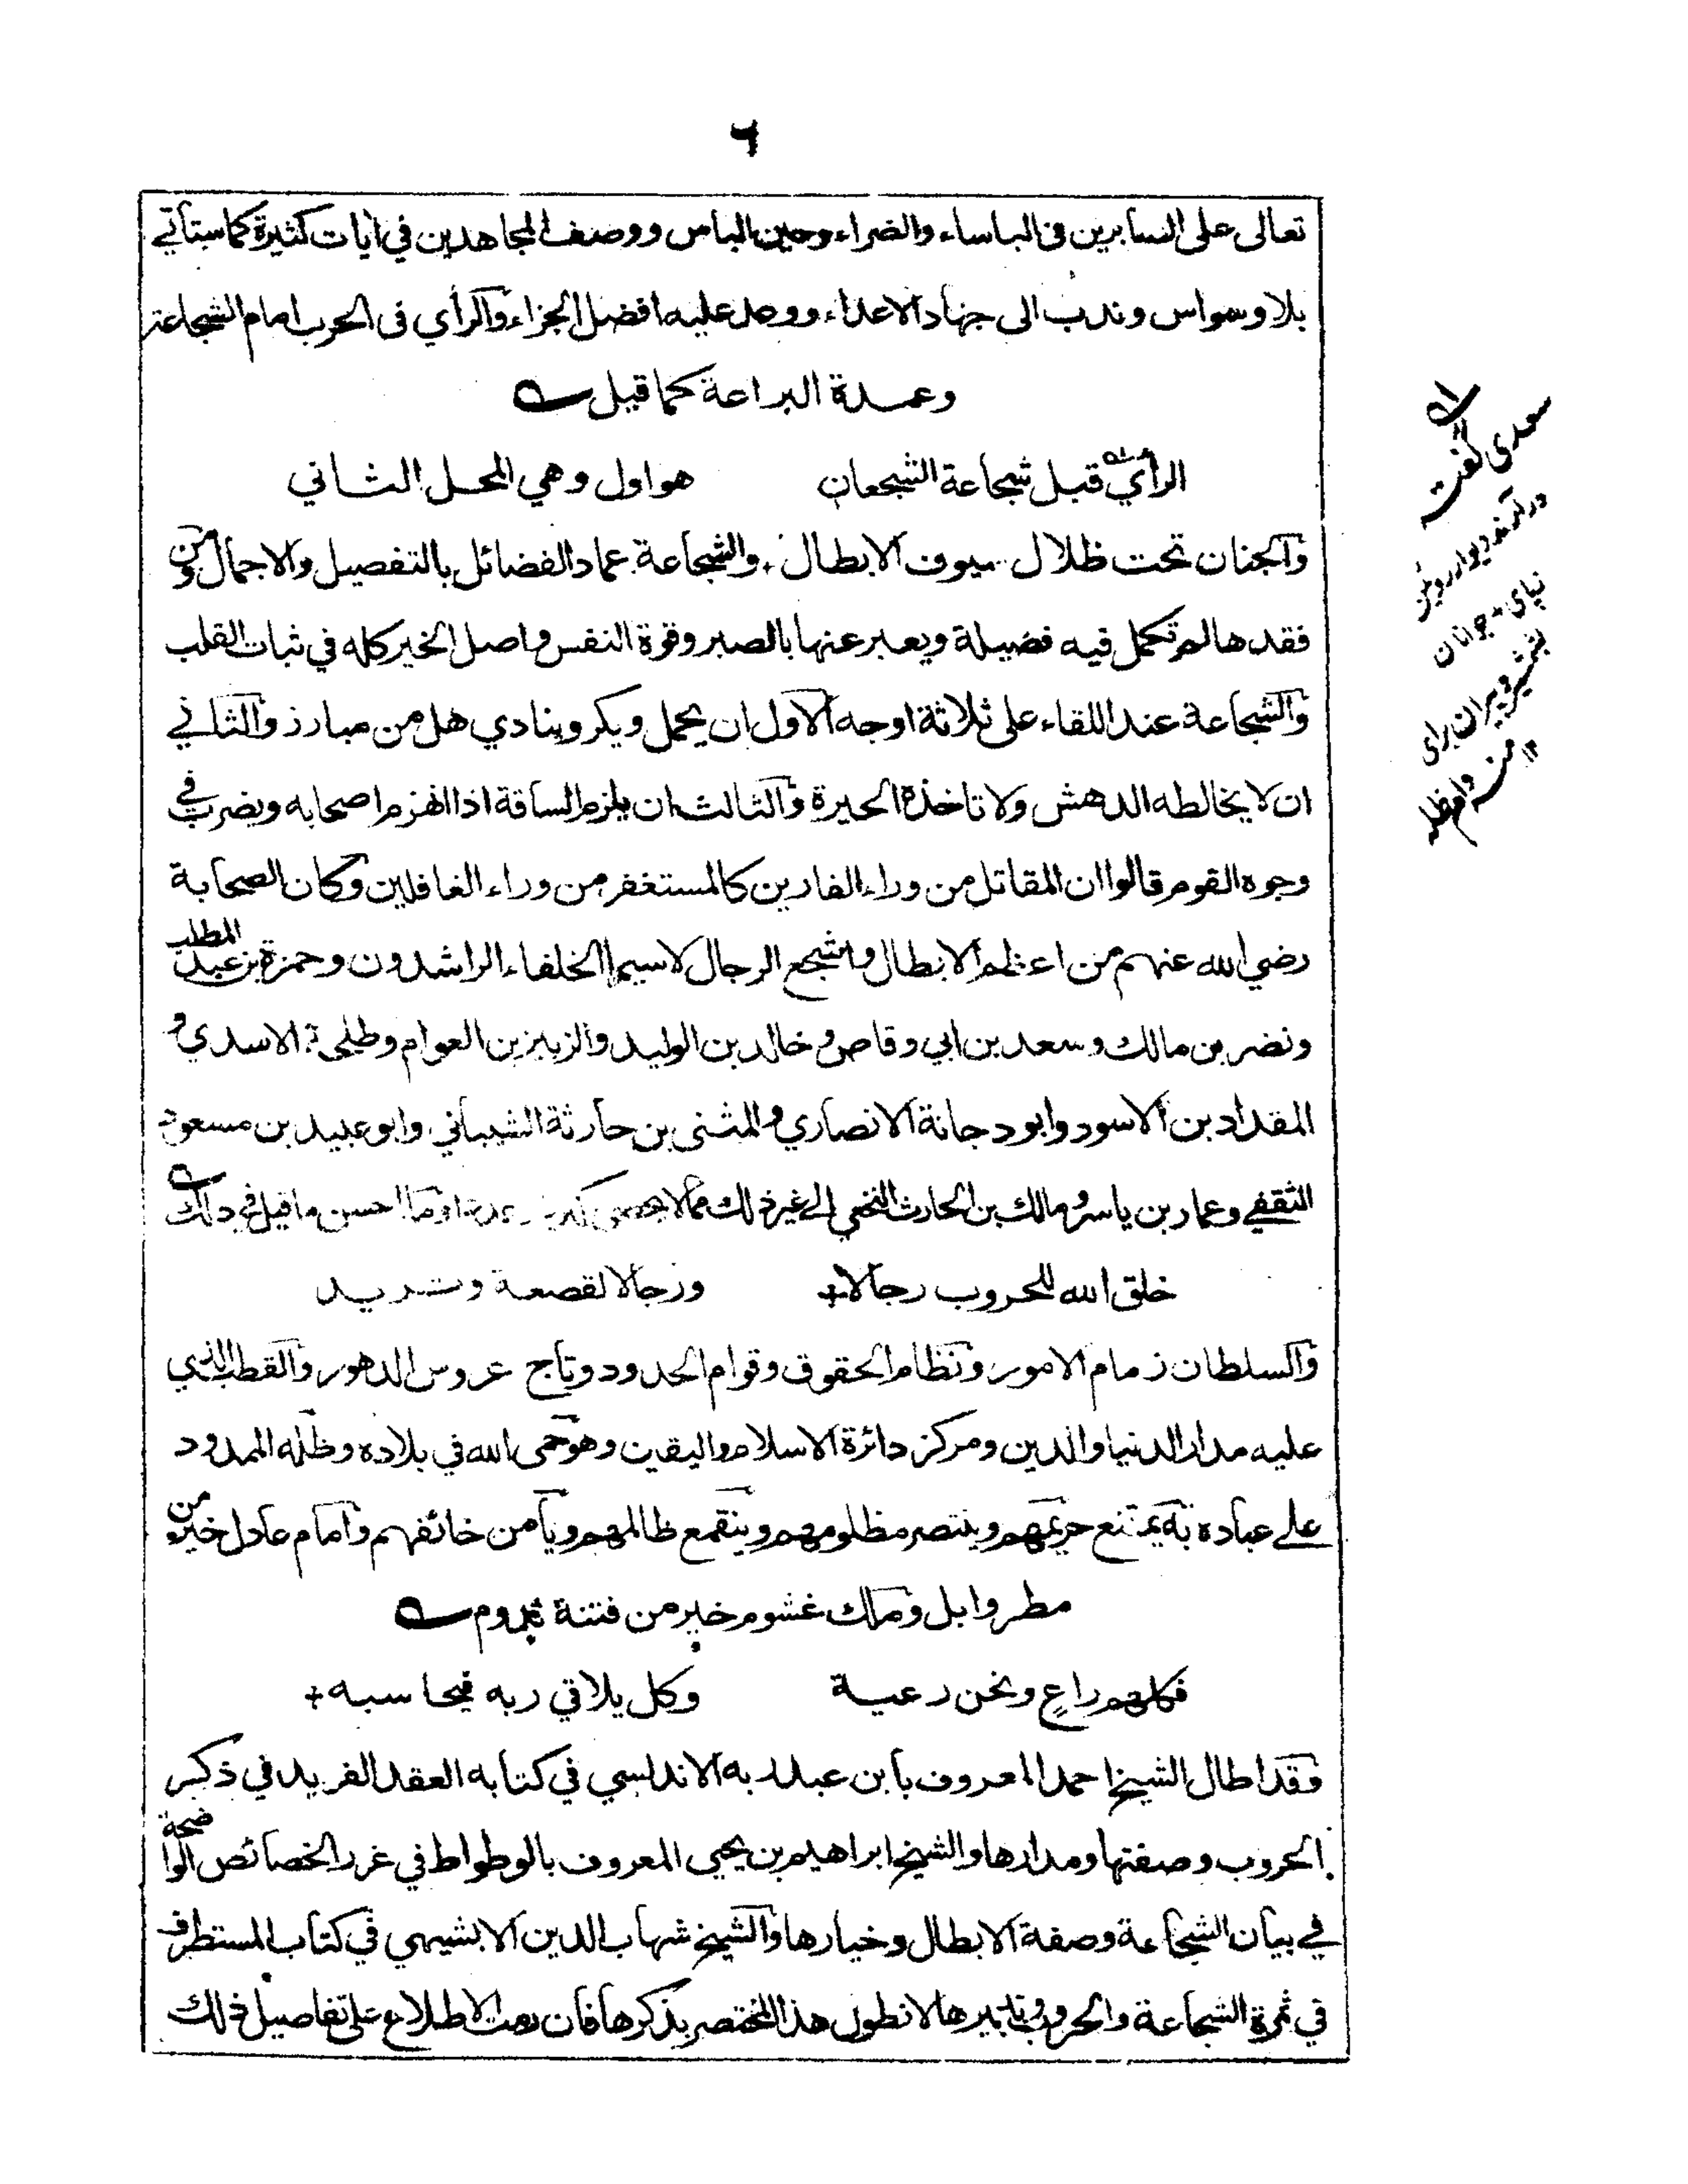 ٦
تعالى على الصابرين فى الباساء والضراء وحين الباس ووصف المجاهدين في ايات كثيرة كما ستأتي
بلا وسواس وندب الى جهاد الاعداء ووعد عليه افضل الجزاء والرأي فى الحرب امام الشجاعة
وعمدة البراعة كما قيل
الرأي قبل شجاعة الشجعان هو اول وهي المحل الثاني
والجنان تحت ظلال سيوف الابطال والشجاعة عماد الفضائل بالتفصيل والاجمال ومن
فقدها لم تكمل فيه فضيلة ويعبر عنها بالصبر وقوة النفس واصل الخير كله في ثبات القلب
والشجاعة عند اللقاء على ثلاثة اوجه الاول ان يحمل ويكر وينادي هل من مبارز والثاني
ان لا يخالطه الدهش ولا تاخذه الحيرة والثالث ان يلزم الساقة اذا انهزم اصحابه ويضرب في
وجوه القوم قالوا ان المقاتل من وراء الفارين كالمستغفر من وراء الغافلين وكان الصحابة
رضي الله عنهم من اعظم الابطال واشجع الرجال لاسيما الخلفاء الراشدون وحمزة بن عبد المطلب
ونضر بن مالك وسعد بن ابي وقاص وخالد بن الوليد والزبير بن العوام وطليحة الاسدي و
المقداد بن الاسود وابو دجانة الانصاري والمثنى بن حارثة الشيباني وابو عبيد بن مسعود
الثقفي وعمار بن ياسر ومالك بن الحارث النخعي الى غير ذلك مما لا يحصى وما احسن ما قيل في ذلك
خلق الله للحروب رجالا ورجالا لقصعة وثريد
والسلطان زمام الامور ونظام الحقوق وقوام الحدود وتاج عروس الدهور والقطب الذي
عليه مدار الدنيا والدين ومركز دائرة الاسلام واليقين وهو حمى الله في بلاده وظله الممدود
على عباده به يمتنع حريمهم وينتصر مظلومهم وينقمع ظالمهم ويأمن خائفهم وامام عادل خير من
مطر وابل وملك غشوم خير من فتنة تدوم
فكلهم راعٍ ونحن رعية وكل يلاقي ربه فيحاسبه
وقد اطال الشيخ احمد المعروف بابن عبد ربه الاندلسي في كتابه العقد الفريد في ذكر
الحروب وصفتها ومدارها والشيخ ابراهيم بن يحيى المعروف بالوطواط في غرر الخصائص الواضحة
في بيان الشجاعة وصفة الابطال وخيارها والشيخ شهاب الدين الابشيهي في كتاب المستطرف
في ثمرة الشجاعة والحروب وتدبيرها لا نطول هذا المختصر بذكرها فان رمت الاطلاع على تفاصيل ذلك
سعدى گفت
درآرند ديوار روئين
زپاى جوانان
بشمشير و پيران براى
منه دام ظله